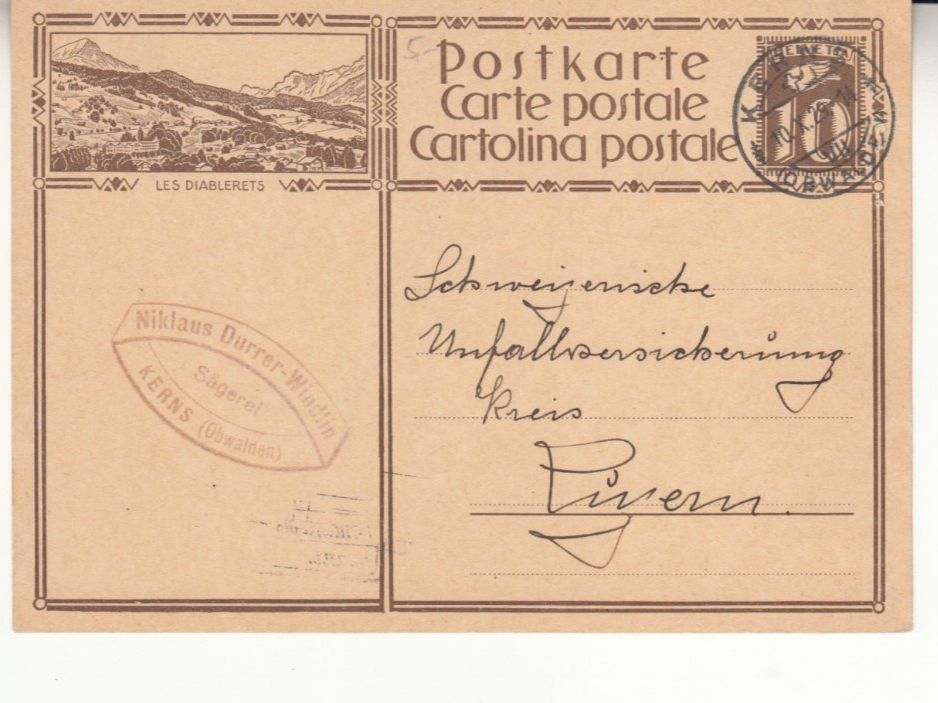 5.-
Postkarte
Carte postale
Cartolina postale
HELVETIA
10
KERNS
10.X.29.-14
(OBWALD)
LES DIABLERETS
Niklaus Durrer-Windlin
Sägerei
KERNS (Obwalden)
Schweizerische
Unfallversicherung
Kreis
Luzern.